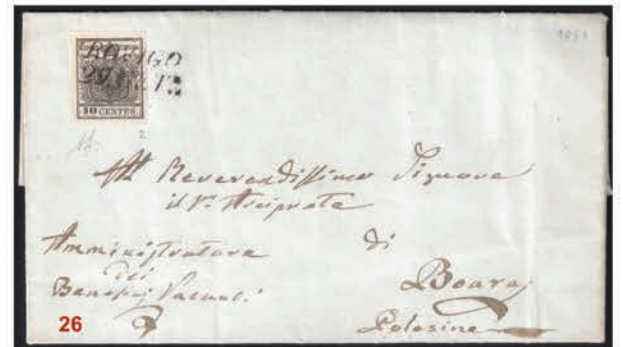 1851
ROVIGO
10 CENTES
2
All Reverendissimo Signore
il Sr. Arciprete
Amministratore
dei
Benefizj Vacanti
di
Boara
Polesine
26